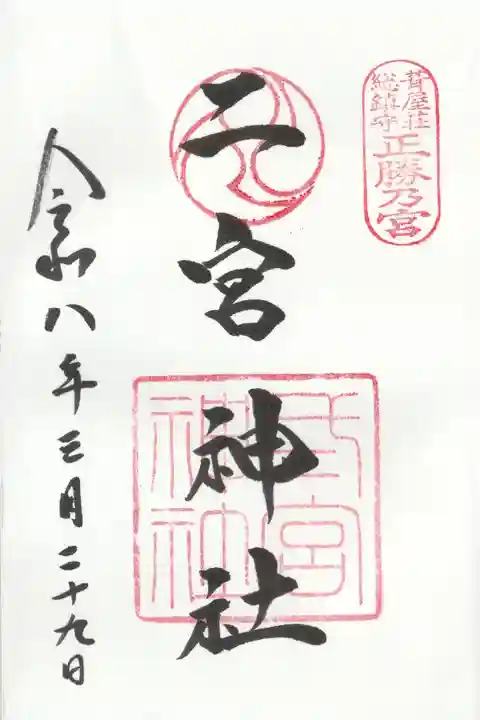 葺屋荘
総鎮守
正勝乃宮
二宮神社
宮
神社
令和八年三月二十九日